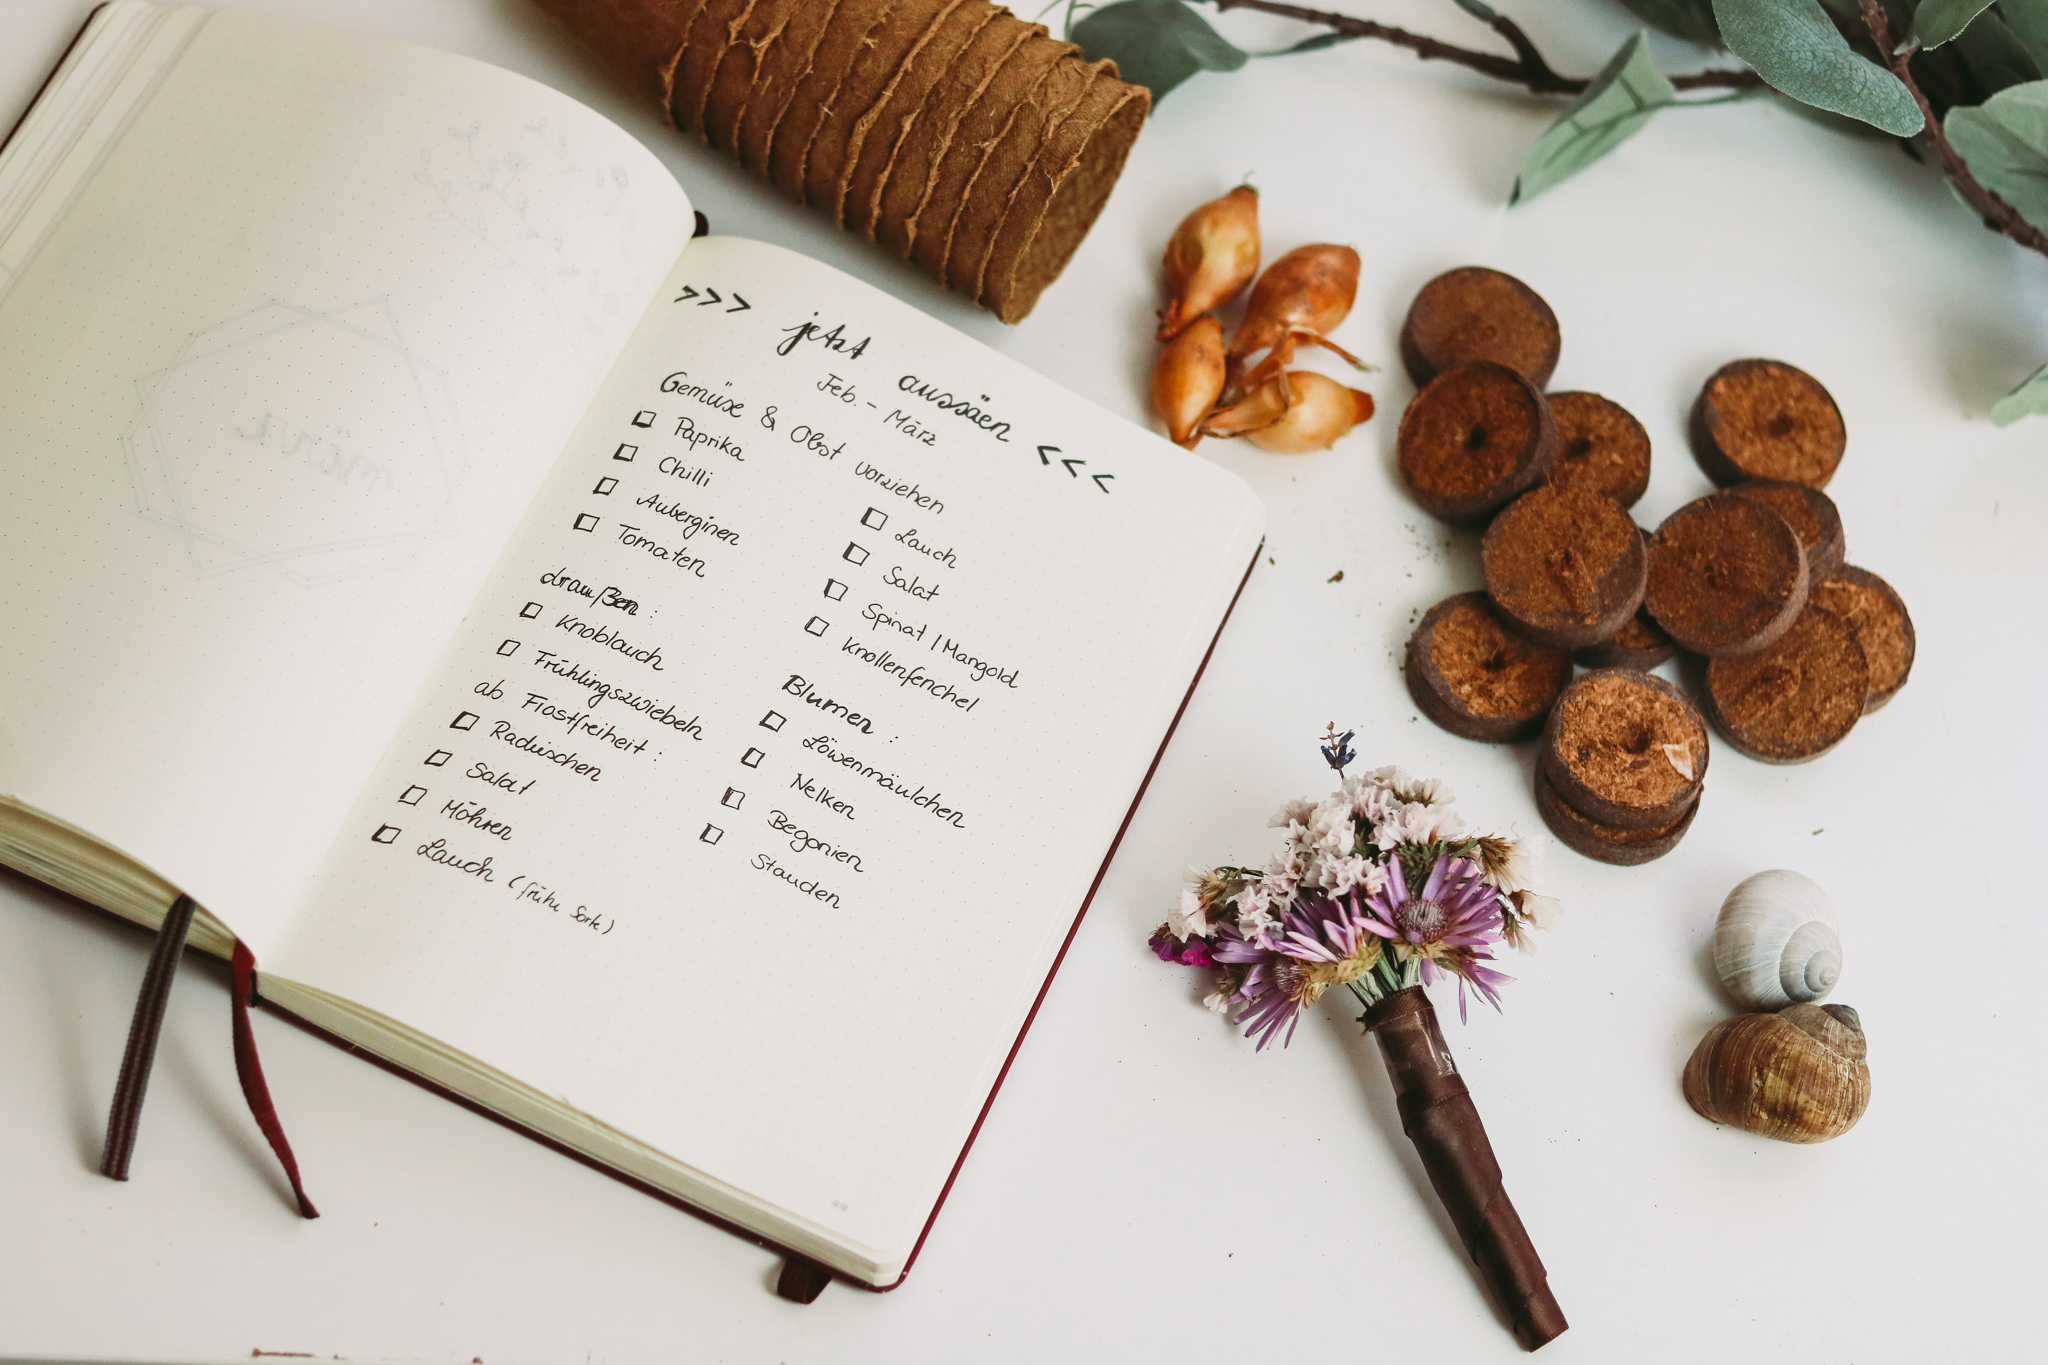 >>> jetzt aussäen <<<
Feb. - März
Gemüse & Obst vorziehen
Paprika
Chilli
Auberginen
Tomaten
draußen:
Knoblauch
Frühlingszwiebeln
ab Frostfreiheit:
Radieschen
Salat
Möhren
Lauch (frühe Sorte)
Lauch
Salat
Spinat / Mangold
Knollenfenchel
Blumen:
Löwenmäulchen
Nelken
Begonien
Stauden
märz